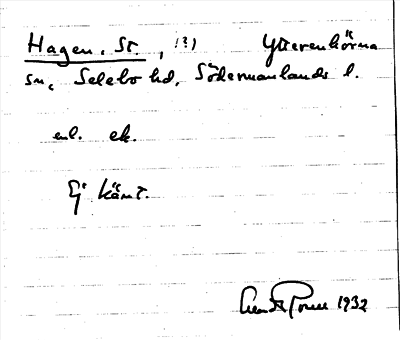 Hagen, St. , (?) Ytterenhörna
sn, Selebo hd, Södermanlands l.
enl. ek.
Ej känt.
1932